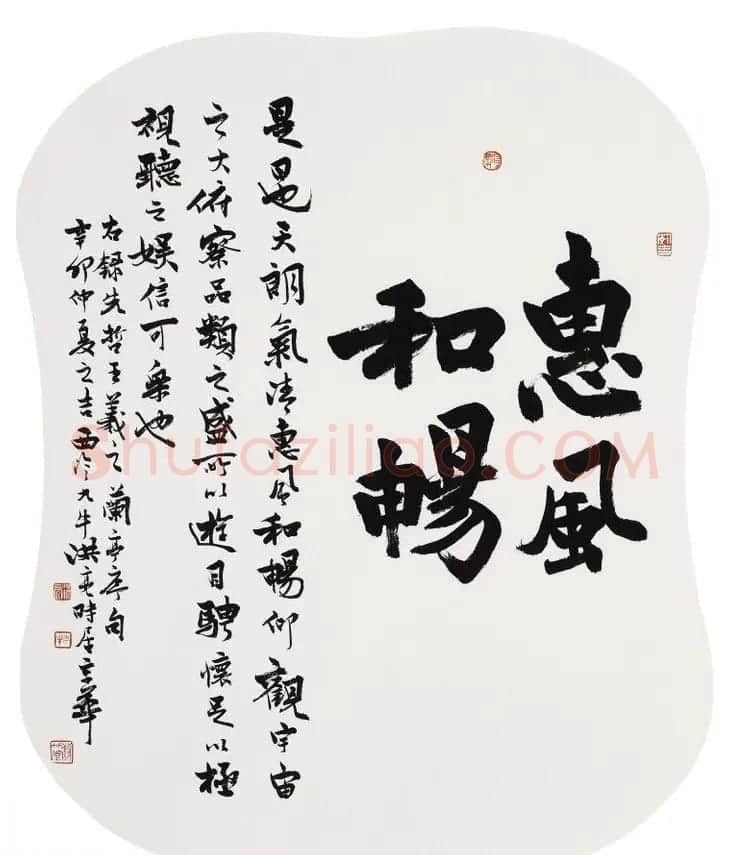 惠風
和暢
是日也天朗氣清惠風和暢仰觀宇宙
之大俯察品類之盛所以遊目騁懷足以極
視聽之娛信可樂也
右錄先哲王羲之蘭亭序句
辛卯仲夏之吉西泠九牛洪亮時居京華
Shufaziliao.COM